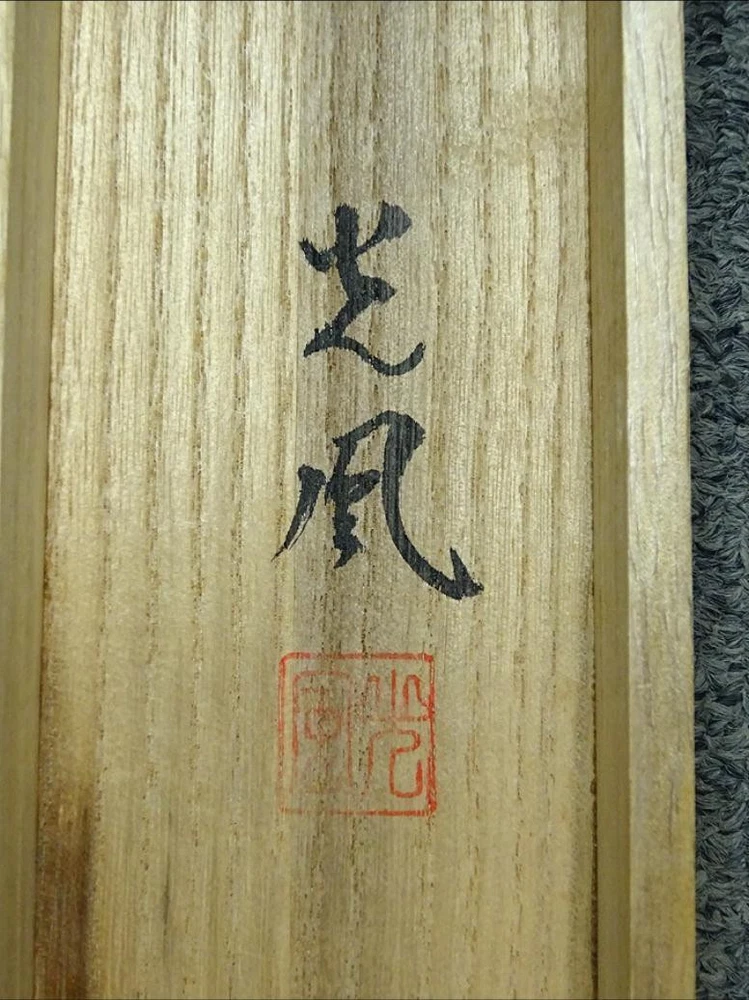 光風
光風